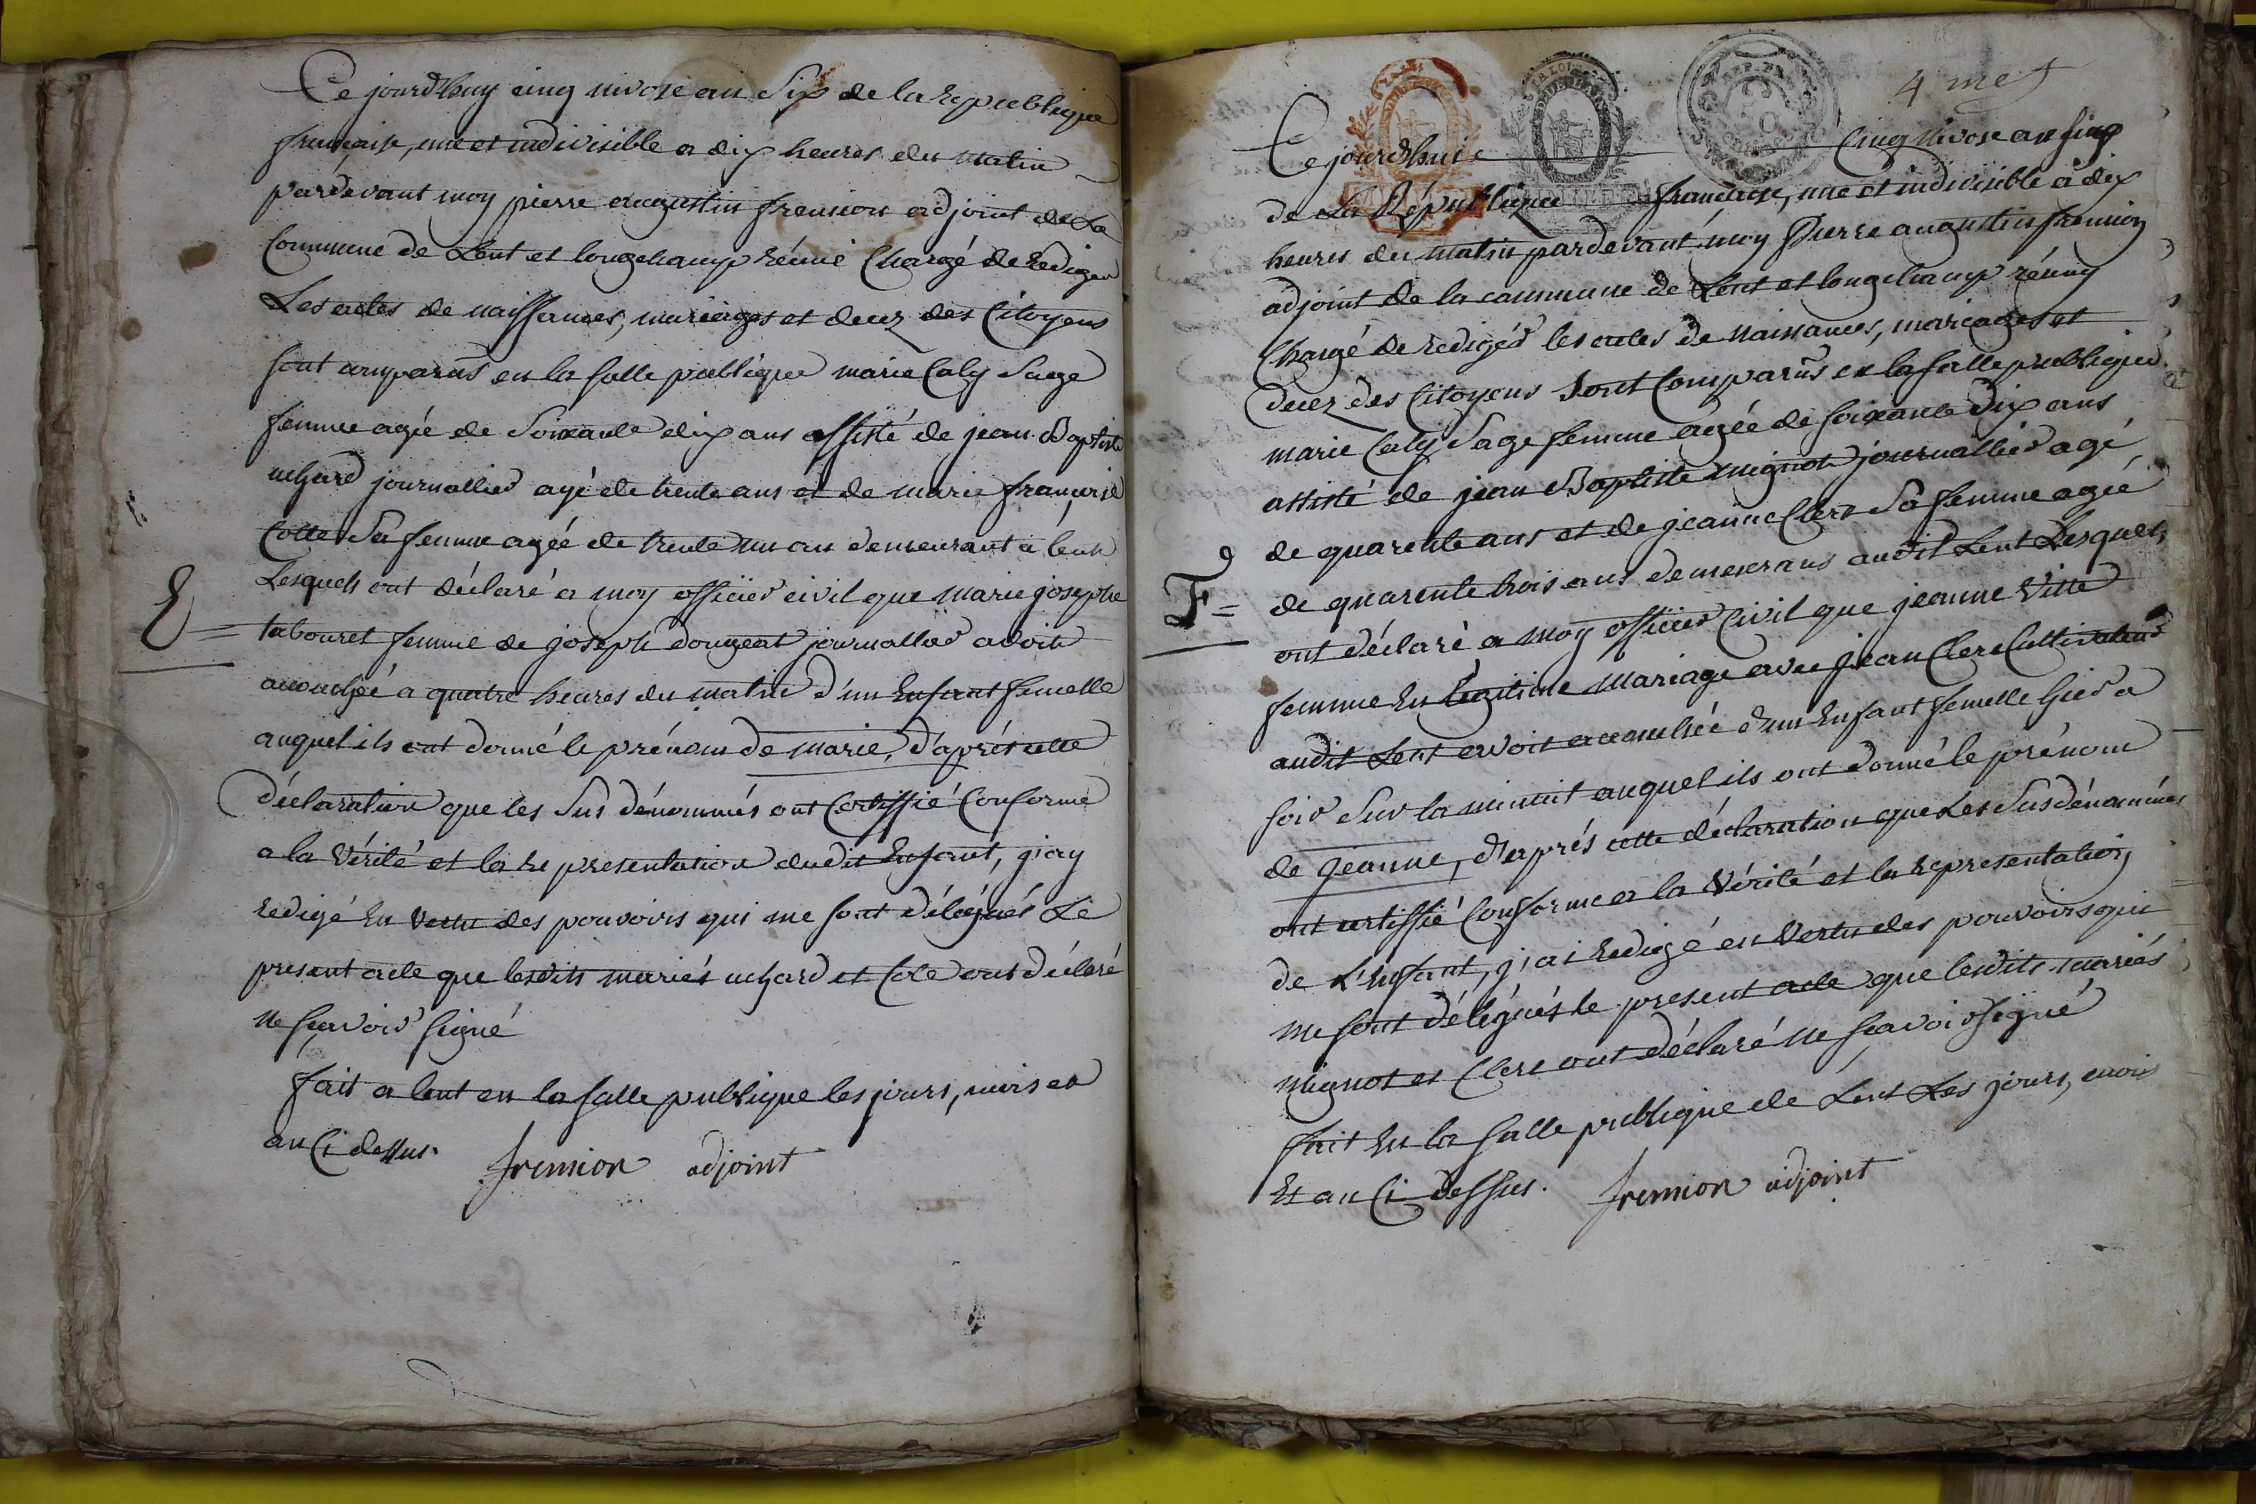 Ce jourd'huy cinq nivose an Six de la republique
française, une et indivisible a dix heures du matin
pardevant moy pierre augustin fremion adjoint de La
Commune de Lent et longchamp réunie Chargé de rediger
Les actes de naissances, mariages et decez des Citoyens
sont comparus en la salle publique marie Caly Sage
femme agée de Soixante dix ans assisté de jean Baptiste
uchard journallier agé de trente ans et de marie françoise
Colle Sa femme agée de trente un an demeurant a lent
E = Lesquels ont déclaré a moy officier civil que marie josephe
tabouret femme de joseph dougeat journallier avoit
accouchée a quatre heures du matin d'un Enfant femelle
auquel ils ont donné le prénom de marie, d'après cette
déclaration que les Sus dénommés ont Certiffié Conforme
a la Vérité et la representation dudit Enfant, j'ay
redigé En vertu des pouvoirs qui me sont délégués Le
present acte que lesdits mariés uchard et Cole ont déclaré
ne sçavoir signé
fait a lent en la salle publique les jours, mois et
an Ci dessus. fremion adjoint
4 me f
Ce jourd'hui cinq nivose an six
de La République française, une et indivisible a dix
heures du matin pardevant moy Pierre augustin fremion
adjoint de la commune de Lent et longchamp réuny
Chargé de redigér les actes de naissances, mariages et
decez des Citoyens Sont Comparus en la salle publique
marie Caly Sage femme agée de soixante Dix ans
assisté de jean Baptiste mignot journallier agé
de quarente ans et de jeanne Clerc Sa femme agée
F = de quarente trois ans demeurans audit Lent Lesquels
ont déclaré a moy officier Civil que jeanne Vitte
femme En légitime mariage avec jean Clerc Cultivateur
audit Lent avoit accouchée d'un Enfant femelle hier a
soir Sur la minuit auquel ils ont donné le prénom
de jeanne, d'après cette déclaration que Les Susdénommés
ont certiffié Conforme a la Vérité et la representation
de L'enfant, j'ai redigé en Vertu des pouvoirs qui
me sont délégués le present acte que lesdits mariés
mignot et Clerc ont déclaré ne sçavoir signé
fait En la salle publique de Lent Les jours, mois
Et an Ci dessus. fremion adjoint